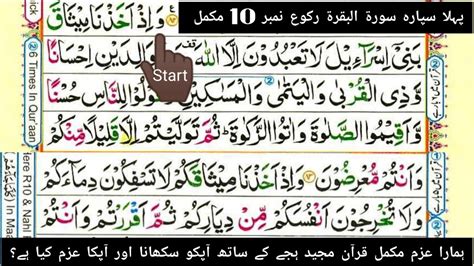 پہلا سپارہ سورۃ البقرۃ رکوع نمبر 10 مکمل
وَاِذْ اَخَذْنَا مِیْثَاقَ
بَنِیْۤ اِسْرَآءِیْلَ لَا تَعْبُدُوْنَ اِلَّا اللّٰهَ وَبِالْوَالِدَیْنِ اِحْسَانًا
Start
وَّذِی الْقُرْبٰی وَالْیَتٰمٰی وَالْمَسٰكِیْنِ وَقُوْلُوْا لِلنَّاسِ حُسْنًا
وَّاَقِیْمُوا الصَّلٰوةَ وَاٰتُوا الزَّكٰوةَ ؕ ثُمَّ تَوَلَّیْتُمْ اِلَّا قَلِیْلًا مِّنْكُمْ
وَاَنْتُمْ مُّعْرِضُوْنَ ﴿۸۳﴾ وَاِذْ اَخَذْنَا مِیْثَاقَكُمْ لَا تَسْفِكُوْنَ دِمَآءَكُمْ
وَلَا تُخْرِجُوْنَ اَنْفُسَكُمْ مِّنْ دِیَارِكُمْ ثُمَّ اَقْرَرْتُمْ وَاَنْتُمْ
6 Times In Qur'aan
Here R10 & Nahl
ہمارا عزم مکمل قرآن مجید ہجے کے ساتھ آپکو سکھانا اور آپکا عزم کیا ہے؟